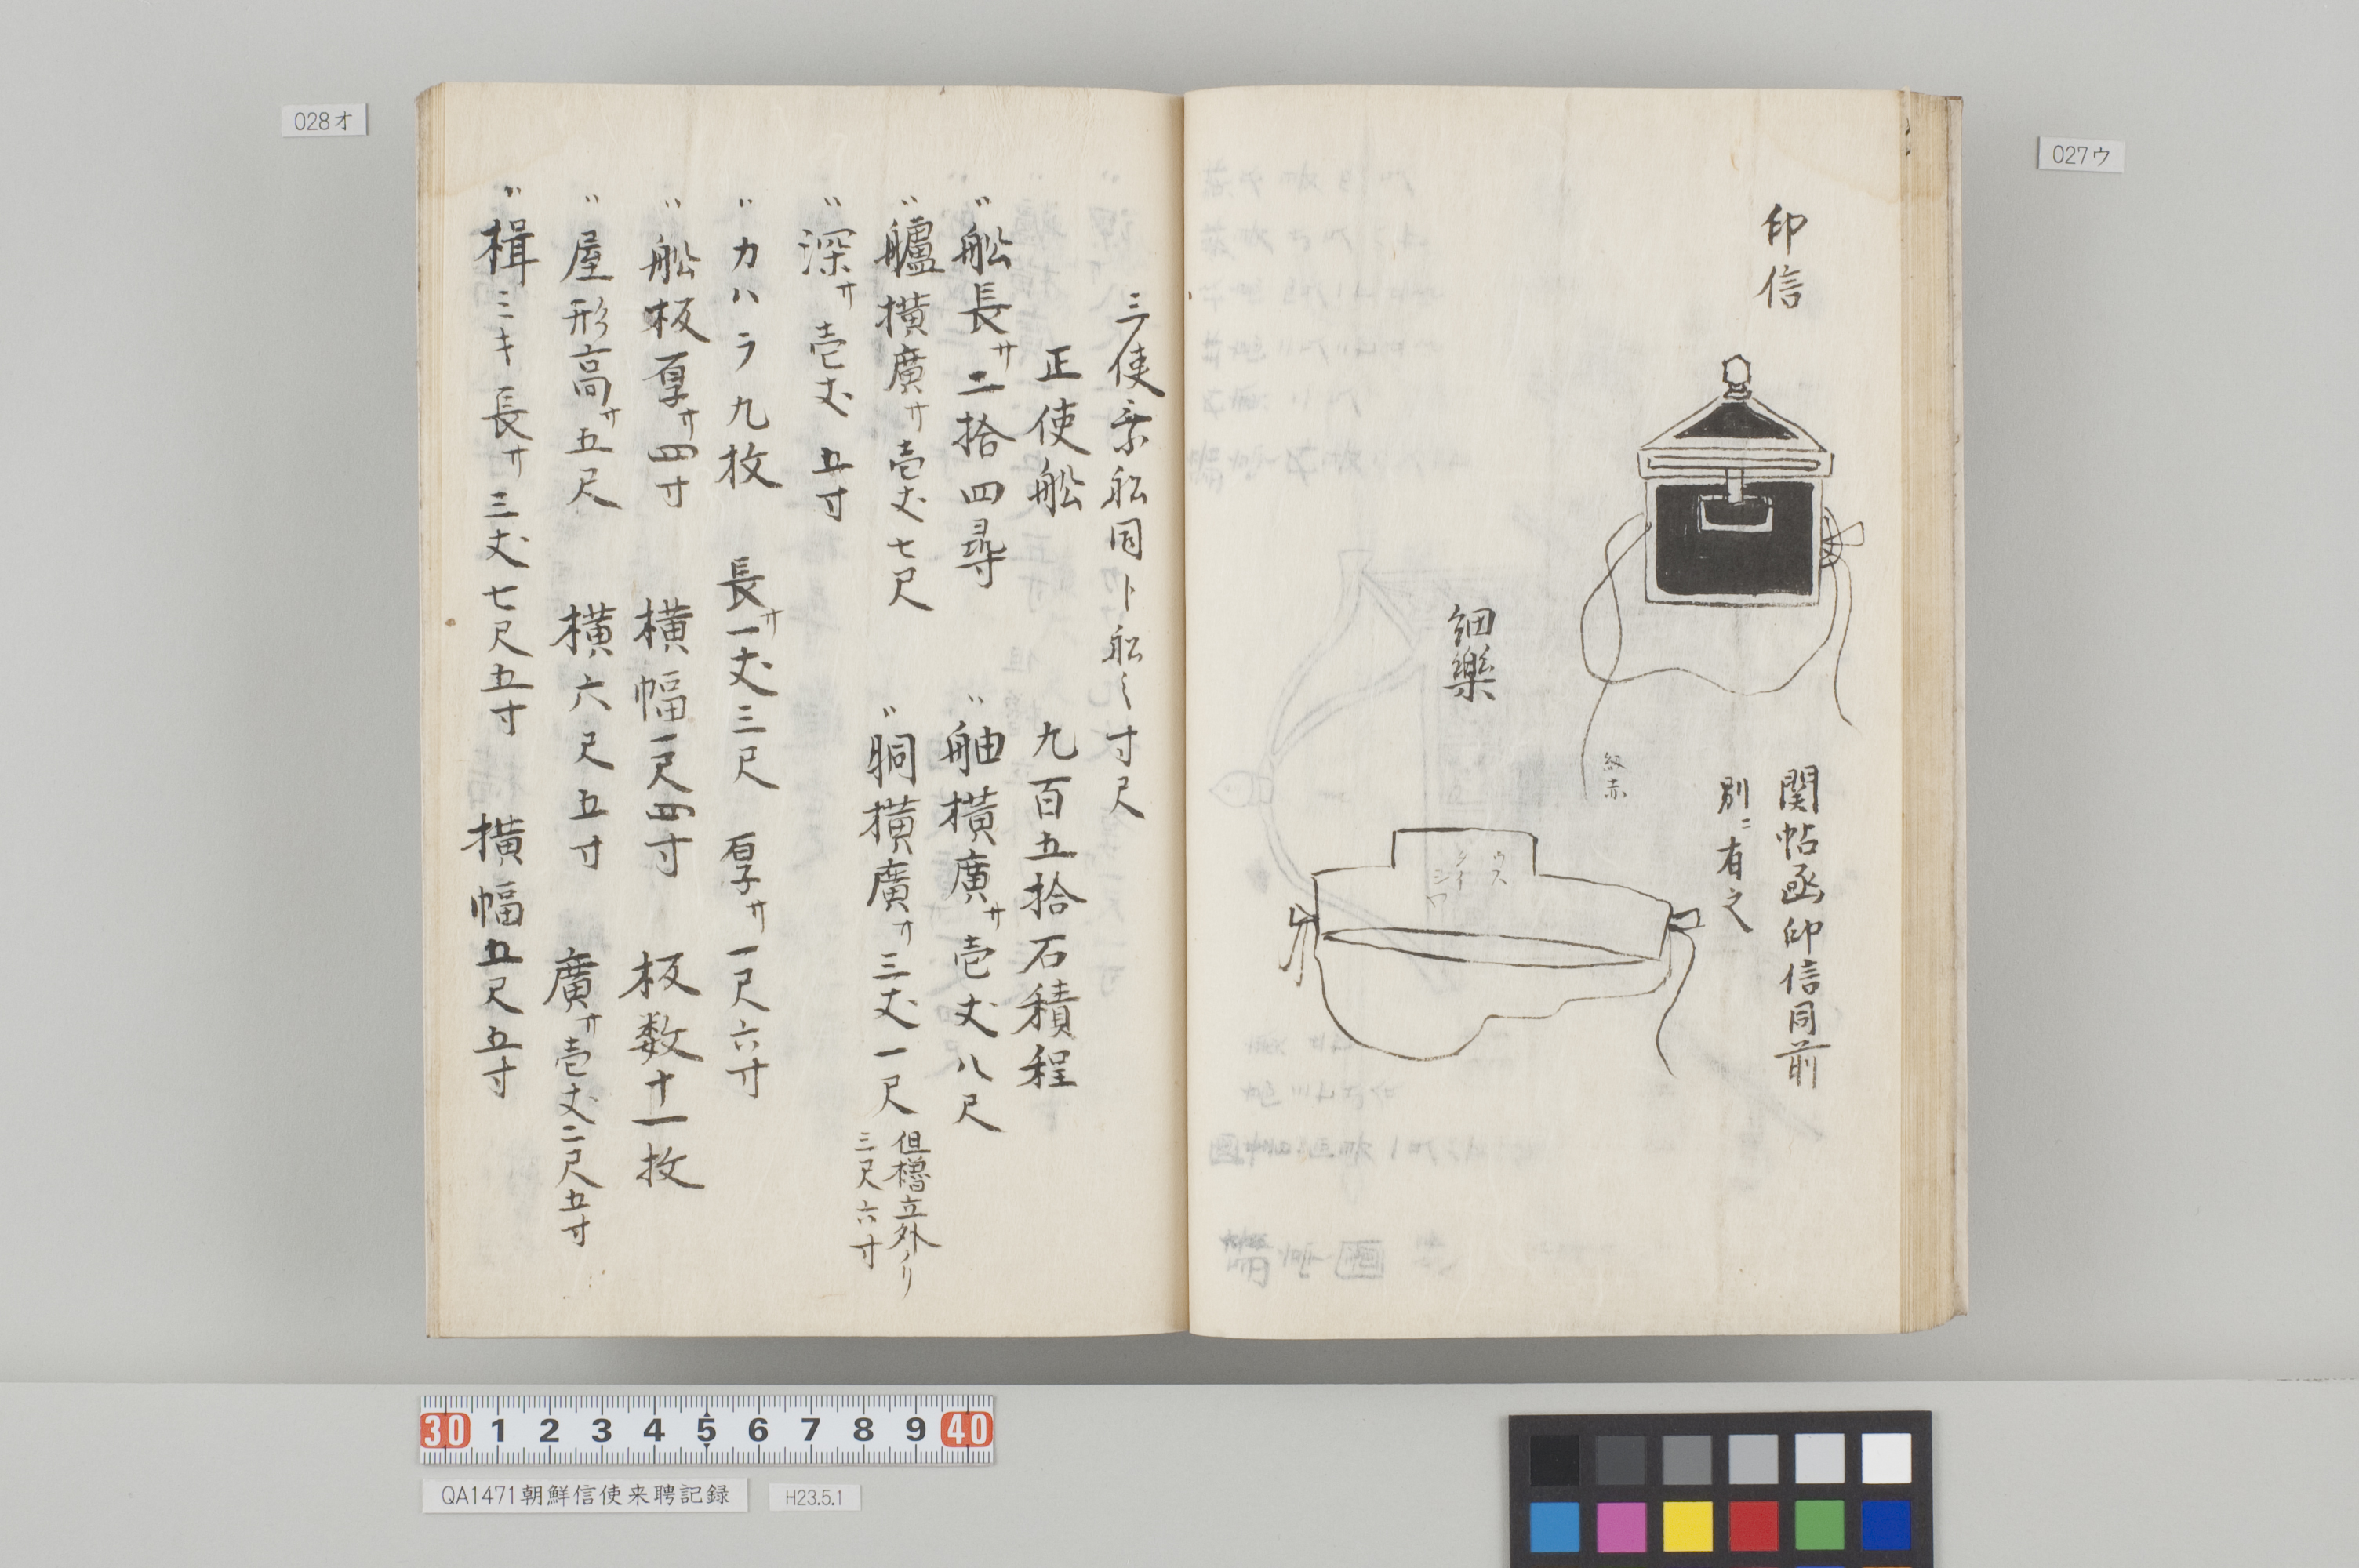 027ウ
印信
関帖函印信同前
別ニ有之
紐赤
細樂
ウス
タイ
シヤ
028オ
三使乗舩同卜舩之寸尺
正使舩　九百五拾石積程
〃舩長サ二拾四尋　〃舳横廣サ壱丈八尺
〃艫横廣サ壱丈七尺　〃胴横廣サ三丈一尺 但櫓立外ノリ
三尺六寸
〃深サ壱丈五寸
〃カハラ九枚　長サ一丈三尺　厚サ一尺六寸
〃舩板厚サ四寸　横幅一尺四寸　板数十一枚
〃屋形高サ五尺　横六尺五寸　廣サ壱丈二尺五寸
〃楫ミキ長サ三丈七尺五寸　横幅五尺五寸
30 1 2 3 4 5 6 7 8 9 40
QA1471朝鮮信使来聘記録
H23.5.1